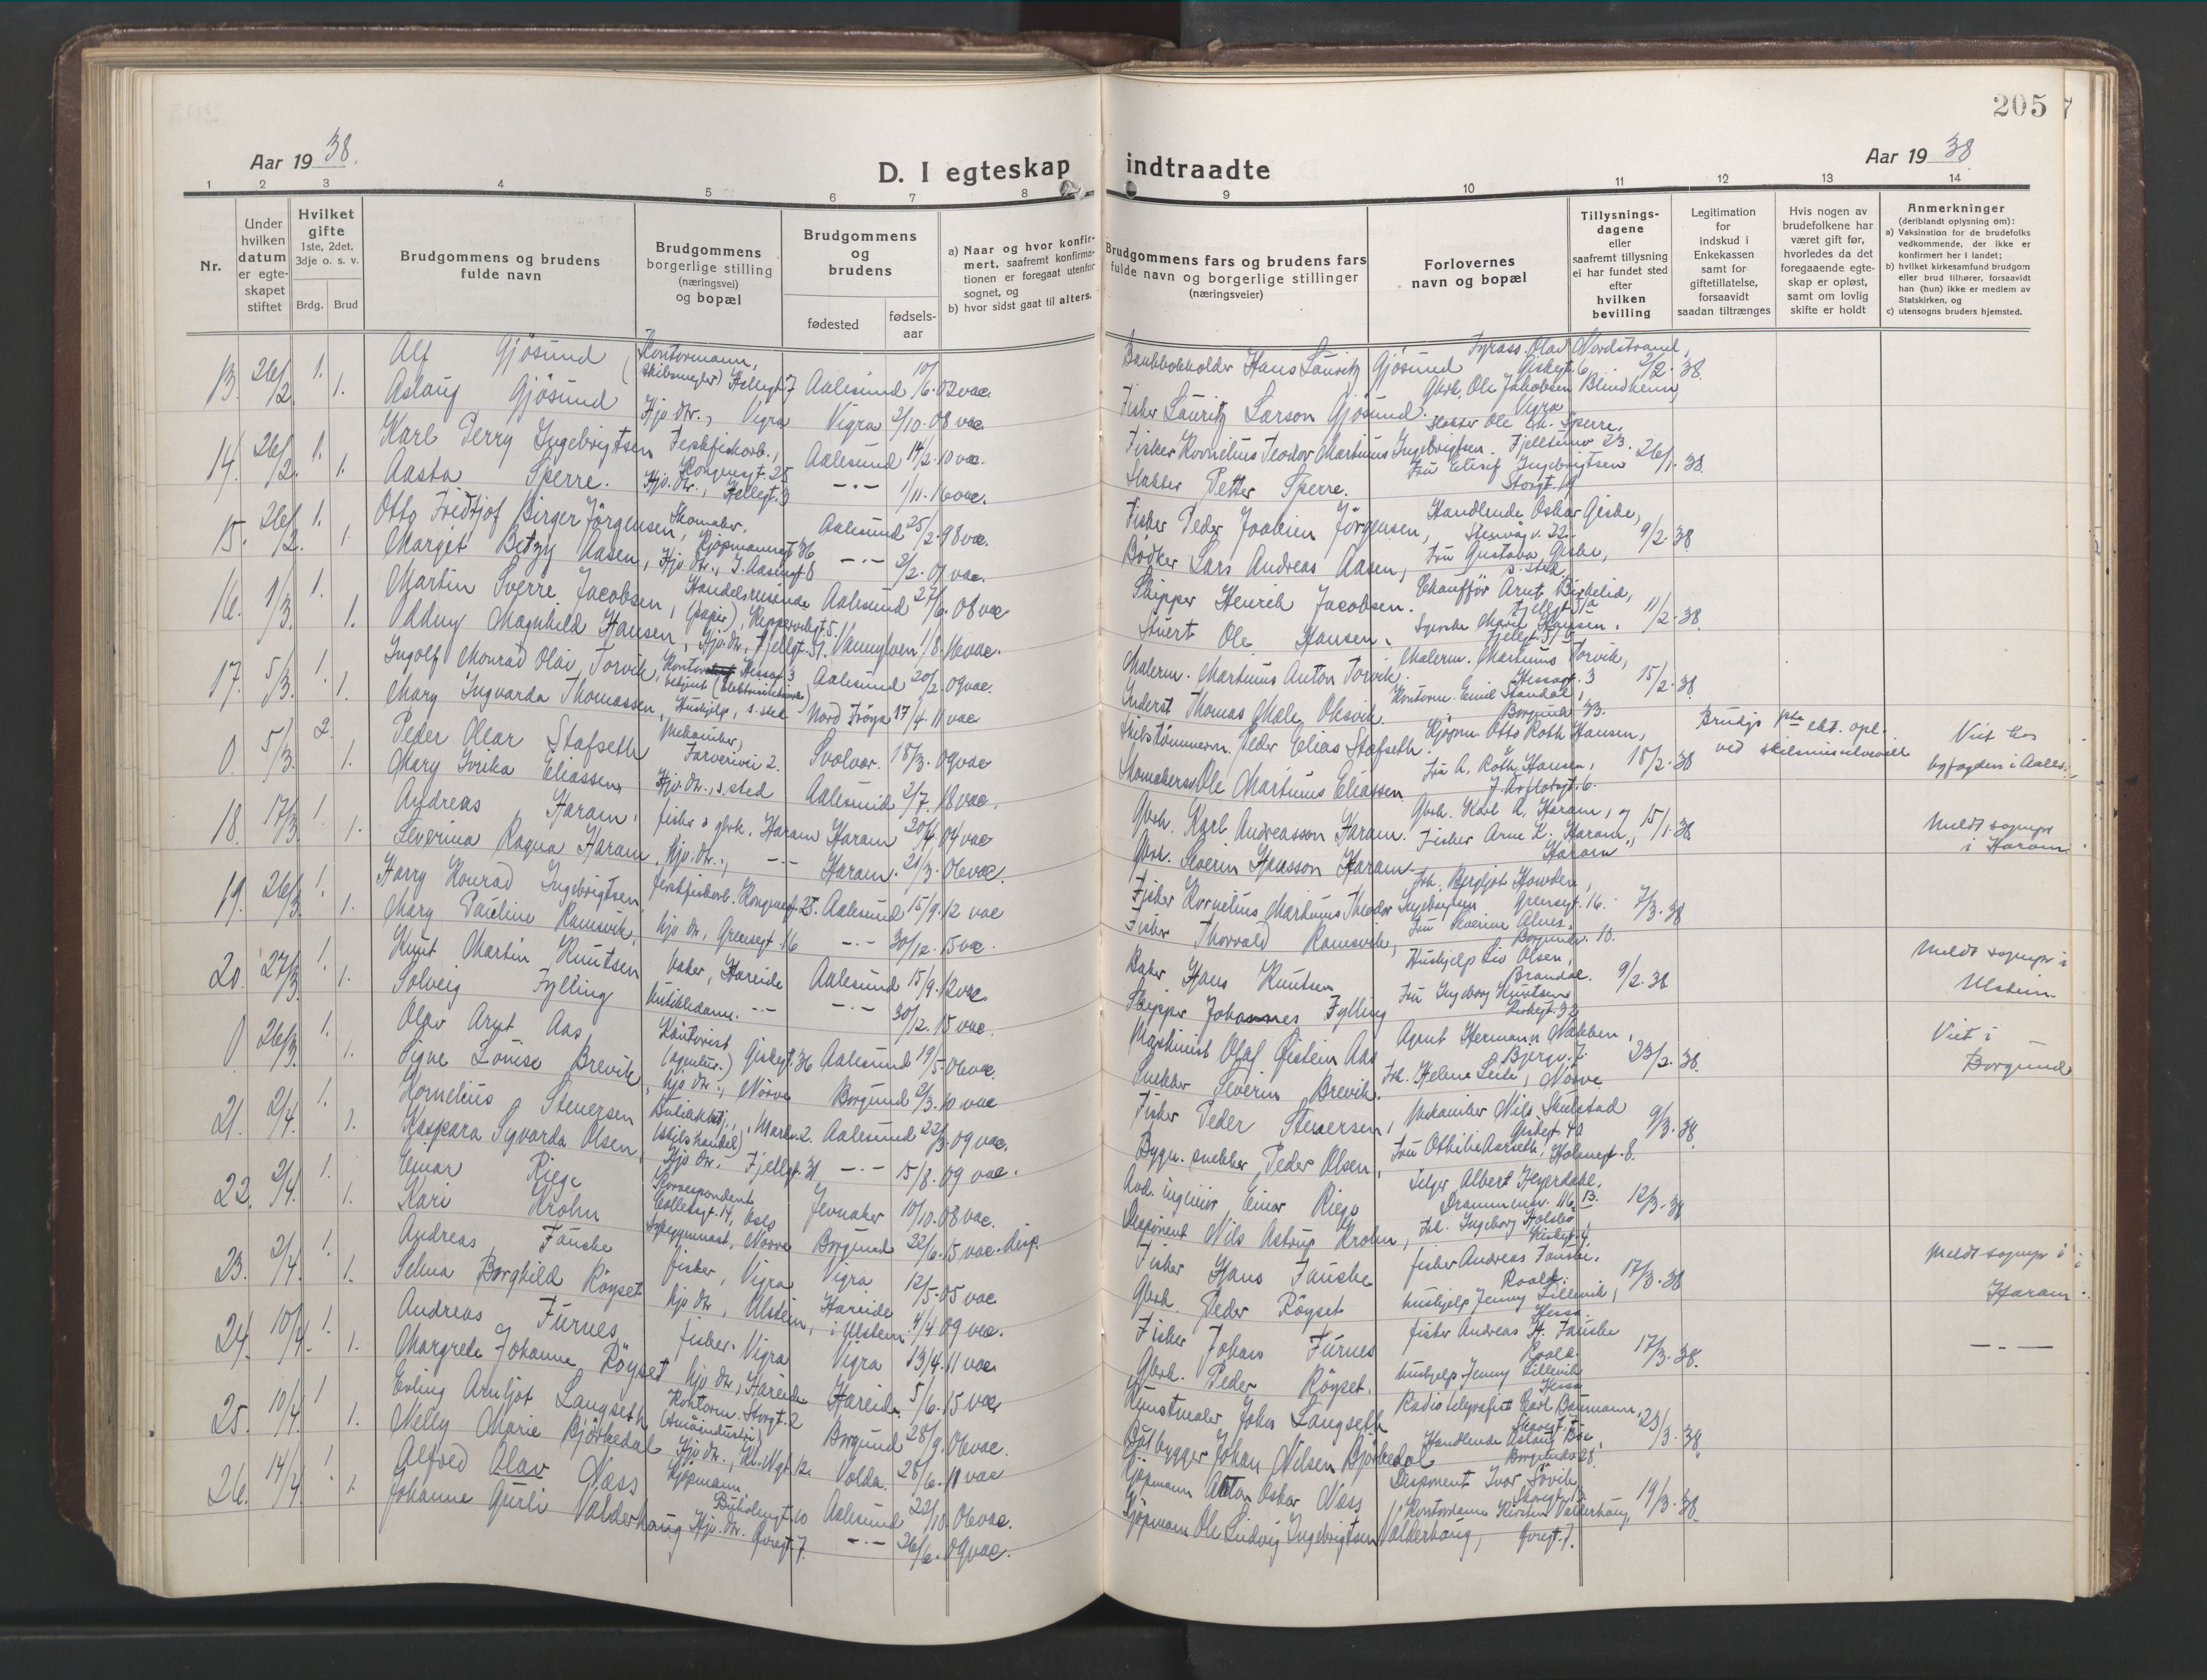 205
Aar 19 38.
D. I egteskap indtraadte
Aar 19 38
1 2 3 4 5 6 7 8 9 10 11 12 13 14
Nr.
Under hvilken datum er egte-skapet stiftet
Hvilket gifte 1ste, 2det, 3dje o. s. v.
Brdg. Brud
Brudgommens og brudens fulde navn
Brudgommens borgerlige stilling (næringsvei) og bopæl
Brudgommens og brudens
fødested
fødsels-aar
a) Naar og hvor konfir-mert, saafremt konfirma-tionen er foregaat utenfor sognet, og
b) hvor sidst gaat til alters.
Brudgommens fars og brudens fars fulde navn og borgerlige stillinger (næringsveier)
Forlovernes navn og bopæl
Tillysnings-dagene eller saafremt tillysning ei har fundet sted efter hvilken bevilling
Legitimation for indskud i Enkekassen samt for giftetillatelse, forsaavidt saadan tiltrænges
Hvis nogen av brudefolkene har været gift før, hvorledes da det foregaaende egte-skap er opløst, samt om lovlig skifte er holdt
Anmerkninger (deriblandt oplysning om):
a) Vaksination for de brudefolks vedkommende, der ikke er konfirmert her i landet;
b) hvilket kirkesamfund brudgom eller brud tilhører, forsaavidt han (hun) ikke er medlem av Statskirken, og
c) utensogns bruders hjemsted.
13. 26/2. 1. Alf Gjøsund Kontormann, (skibsmegler) Hellegt. 7 Aalesund 10/6. 02 vac. Hans Lauritz Gjøsund Olav Nordstrand, Giskegt. 6. 2/2. 38.
1. Aslaug Gjøsund Hjv. dtr., Vigra Vigra 2/10. 08 vac. Fisker Lauritz Larson Gjøsund. Gbrk. Ole Jakobsen Blindheim, Vigra
14. 26/2. 1. Karl Perry Ingebrigtsen Ferskfiskarb., Kongensgt. 25 Aalesund 14/2. 10 vac. Fisker Kornelius Teodor Martinus Ingebrigtsen. Ole Chr. Sperre, Fjelltunv. 23. 26/1. 38.
1. Aasta Sperre. Hjv. dtr., Hellegt. 3 -"- 1/11. 16 vac. Petter Sperre. Fru Elisif Ingebrigtsen Storgt. 11
15. 26/2. 1. Otto Fridtjof Birger Jørgensen, Skomaker, Kjøpmannsgt 36 Aalesund 25/2. 98 vac. Fisker Peder Joakim Jørgensen, Handlende Oskar Giske, Stenvåg v. 22. 9/2. 38
1. Margit Betzy Aasen, Hjv. dtr., I. Aasensgt 6 -"- 2/2. 07 vac. Bødker Lars Andreas Aasen, Fru Gustava Giske, s. sted.
16. 1/3. 1. Martin Sverre Jacobsen, Handelsreisende (papir), Skippervolsgt. 5. Aalesund 27/6. 08 vac Skipper Henrik Jacobsen. Chauffør Arnt Birkelid, Fjellgt. 31a 11/2. 38.
1. Oddny Magnhild Hansen, Hjv. dtr, Fjellgt. 31. Vannylven 1/8. 16 vac. Stuert Ole Hansen. Marie Hansen. Fjellgt. 31 b
17. 5/3. 1. Ingolf Monrad Olav Torvik, Kontor Hessagt 3 betjent (Elektrisitetsverk) Aalesund 20/2. 09 vac. Malerm. Martinus Anton Torvik. Malerm. Martinus Torvik, Hessagt. 3 15/2. 38.
1. Mary Ingvarda Thomassen, Hushjelp, s. sted Nord Frøya 17/4. 11 vac Inderst Thomas Olesvik. Kontorm. Emil Standal, Borgundv. 33.
0 5/3. 2. Peder Olear Stafseth Mekaniker, Farverivei 2. Svolvær. 18/3. 09 vac Skibstømmerm. Peder Elias Stafseth. Kjøpm. Otto Roth Hansen, 18/2. 38 Brudgs 1ste ekt. opl. ved skilsmisse Viet hos
1. Mary Eliassen, Hjv. dtr., s. sted Aalesund 2/7. 18 vac. Ole Martinus Eliassen. Fru A. Roth Hansen, J. Aarflotsgt. 6. byfogden i Aales.
18. 17/3. 1. Andreas Haram, fisker & gbrk. Haram Haram 20/4 04 vac Gbrk. Karl Andreasson Haram. Gbrk. Karl A. Haram, og 15/1. 38 Meldt sognepr
1. Severina Ragna Haram, Hjv. dtr., -"- Haram. 21/3. 06 vac. Gbrk. Severin Hansson Haram. Fisker Arne K. Haram, Haram i Haram
19. 26/3. 1. Harry Konrad Ingebrigtsen, ferskfiskarb. Kongensgt. 25. Aalesund 15/9. 12 vac Fisker Kornelius Martinus Theodor Ingebrigtsen Frk. Bergljot Howden, Grensegt. 16. 7/3. 38
1. Mary Pauline Ramsvik, hjv dtr, Grensegt. 16 -"- 30/12. 15 vac. Fisker Thorvald Ramsvik, Fru Alnes. Borgundv. 10.
20. 27/3. 1. Knut Martin Knutsen baker, Hareide Aalesund 15/9. 12 vac. Baker Hans Knutsen Hushjelp Liv Olsen, Brandal. 9/2. 38 Meldt sognepr i
1. Solveig Fylling butikkdame. -"- -"- 30/12. 15 vac. Skipper Johannes Fylling Fru Ingeborg Knutsen Kirkegt. 32 Ulstein.
0 26/3. 1. Olav Arnt Aas Kontorist (agentur.) Giskegt. 36 Aalesund 19/5. 06 vac. Maskinist Olaf Øistein Aas Agent Hermann Nakken, Bjørgv. 7. 23/2. 38. Viet i
1. Signe Louise Brevik, hjv dtr., Nørve Borgund 2/3. 10 vac Snekker Severin Brevik. Frk. Helene Leite, Nørve Borgund
21. 2/4. 1. Kornelius Stenersen Butikkbetj., (skibshandel) Markv. 2. Aalesund 22/3. 09 vac. Fisker Peder Stenersen, Mekaniker Nils Skulstad Giskegt. 40 9/3. 38.
1. Kaspara Syvarda Olsen, Hjv dtr. Fjellgt. 31 -"- 15/8. 09 vac. Bygn. snekker Peder Olsen, Fru Othilie Aarseth, Holmegt. 8.
22. 2/4. 1. Einar Riege Korrespondent Colletsgt. 14, Oslo Jevnaker 10/10. 08 vac. Avd. ingeniør Einar Riege Selger Albert Heyerdahl. Drammensv. 116. 13. 12/3. 38
1. Kari Krohn Sykegymnast, Nørve Borgund 22/6. 15 vac. disp. Disponent Nils Astrup Krohn, Frk. Ingeborg Holsbø, Kirkegt. 4.
23. 2/4. 1. Andreas Fauske fisker, Vigra Vigra 12/5. 05 vac Fisker Hans Fauske fisker Andreas Fauske. Roald. 17/3. 38 Meldt sognepr i
1. Selma Borghild Røyset hjv dtr, Ulstein, Hareide i Ulstein 4/4 09 vac. Gbrk. Peder Røyset hushjelp Jenny Lillevik, Hessa. Haram
24. 10/4. 1. Andreas Furnes, fisker. Vigra Vigra 13/4. 11 vac. Fisker Johan Furnes fisker Andreas H. Fauske Roald. 17/3. 38. -"-
1. Margrete Johanne Røyset hjv dtr, Hareide Hareide 5/6. 15 vac Gbrk. Peder Røyset. hushjelp Jenny Lillevik Hessa
25. 10/4. 1 Erling Arnljot Langseth Kontorm. Storgt. 2 (småindustri) Borgund 28/9. 06 vac. Kunstmaler John Langseth Radiotelegrafist Carl Baumann, 23/3. 38.
1. Nelly Marie Bjørkedal Hjv dtr., Kl. Ngt. 12. Volda. 28/6. 11 vac Båtbygger Johan Nilsen Bjørkedal Handlende Aslaug Bøe, Borgundv 28.
26. 14/4. 1 Alfred Olav Næss Kjøpmann Buholmgt. 10 Aalesund 22/10. 06 vac. Kjøpmann Anton Oskar Næss Disponent Ivar Søvik 19/3. 38.
1. Johanne Gurli Valderhaug Hjv. dtr. Øvregt. 7. -"- 26/6. 09 vac. Kjøpmann Ole Ludvig Ingebrigtsen Valderhaug, Kontordame Kirsten Valderhaug, Øvregt. 7.